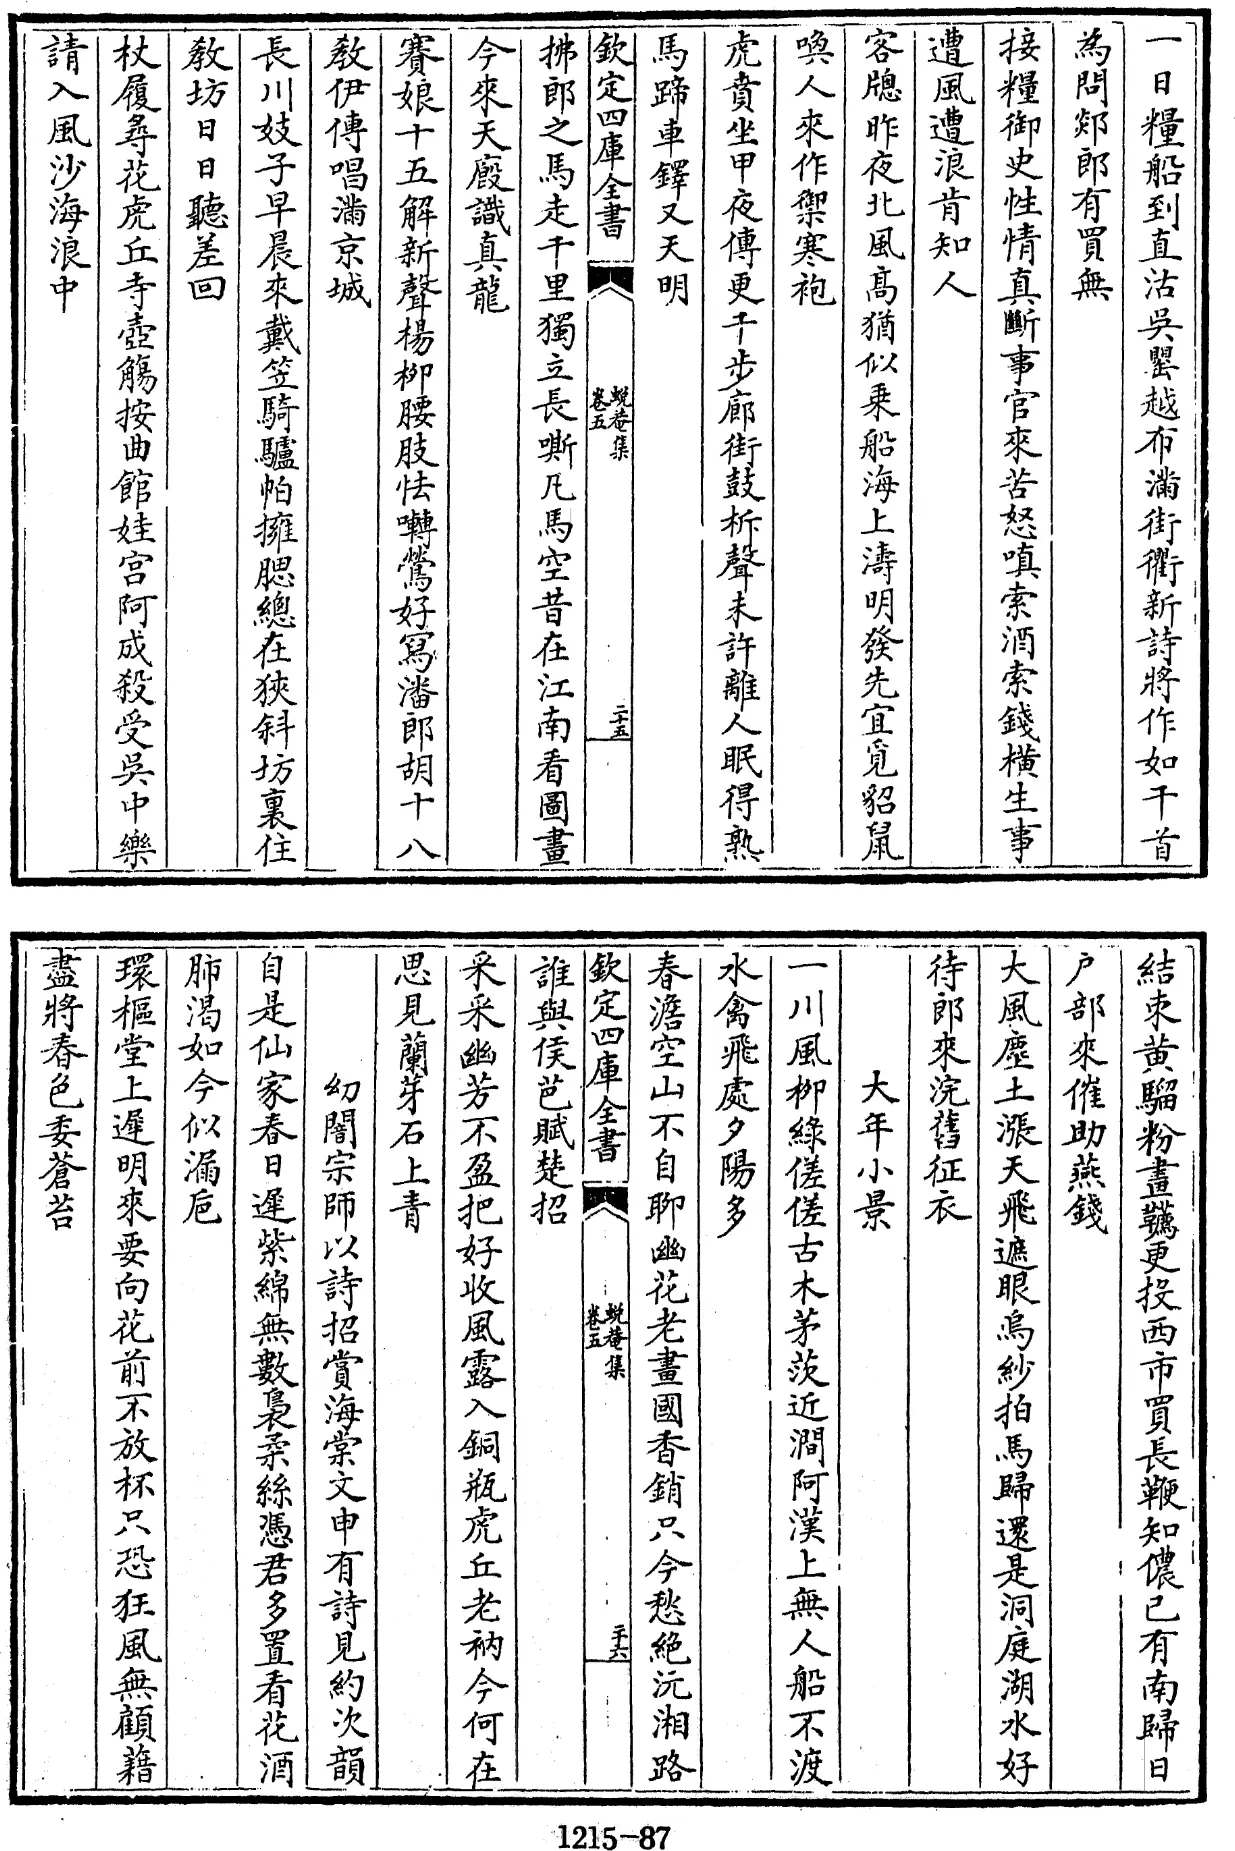 一日糧船到直沽吳罌越布滿街衢新詩將作如干首
為問郯郎有買無
接糧御史性情真斷事官來苦怒嗔索酒索錢橫生事
遭風遭浪肯知人
客牕昨夜北風高猶似乗船海上濤明發先宜覓貂鼠
喚人來作禦寒袍
虎賁坐甲夜傳更千步廊街鼓柝聲未許離人眠得熟
馬蹄車鐸又天明
欽定四庫全書
蛻菴集
卷五
二十五
拂郎之馬走千里獨立長嘶凡馬空昔在江南看圖畫
今來天廐識真龍
賽娘十五解新聲楊柳腰肢怯囀鶯好寫潘郎胡十八
教伊傳唱滿京城
長川妓子早晨來戴笠騎驢帕擁腮總在狹斜坊裏住
教坊日日聽差回
杖履尋花虎丘寺壺觴按曲館娃宮阿成殺受吳中樂
請入風沙海浪中
結束黃騮粉畫韉更投西市買長鞭知儂已有南歸日
户部來催助燕錢
大風塵土漲天飛遮眼烏紗拍馬歸還是洞庭湖水好
待郎來浣舊征衣
大年小景
一川風柳綠傞傞古木茅茨近澗阿漢上無人船不渡
水禽飛處夕陽多
春澹空山不自聊幽花老畫國香銷只今愁絶沅湘路
欽定四庫全書
蛻菴集
卷五
二十六
誰與侯芭賦楚招
采采幽芳不盈把好收風露入銅瓶虎丘老衲今何在
思見蘭芽石上青
幻闇宗師以詩招賞海棠文申有詩見約次韻
自是仙家春日遲紫綿無數裊柔絲憑君多置看花酒
肺渴如今似漏巵
環樞堂上遲明來要向花前不放杯只恐狂風無顧藉
盡將春色委蒼苔
1215-87